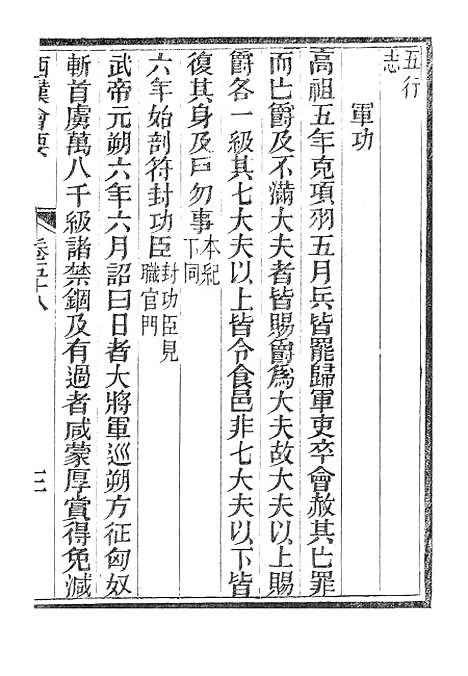 五行
志
軍功
高祖五年克項羽五月兵皆罷歸軍吏卒會赦其亡罪
而亡爵及不滿大夫者皆賜爵爲大夫故大夫以上賜
爵各一級其七大夫以上皆令食邑非七大夫以下皆
復其身及戶勿事本紀
下同
六年始剖符封功臣封功臣見
職官門
武帝元朔六年六月詔曰日者大將軍巡朔方征匈奴
斬首虜萬八千級諸禁錮及有過者咸蒙厚賞得免減
西漢會要
卷五十八
三